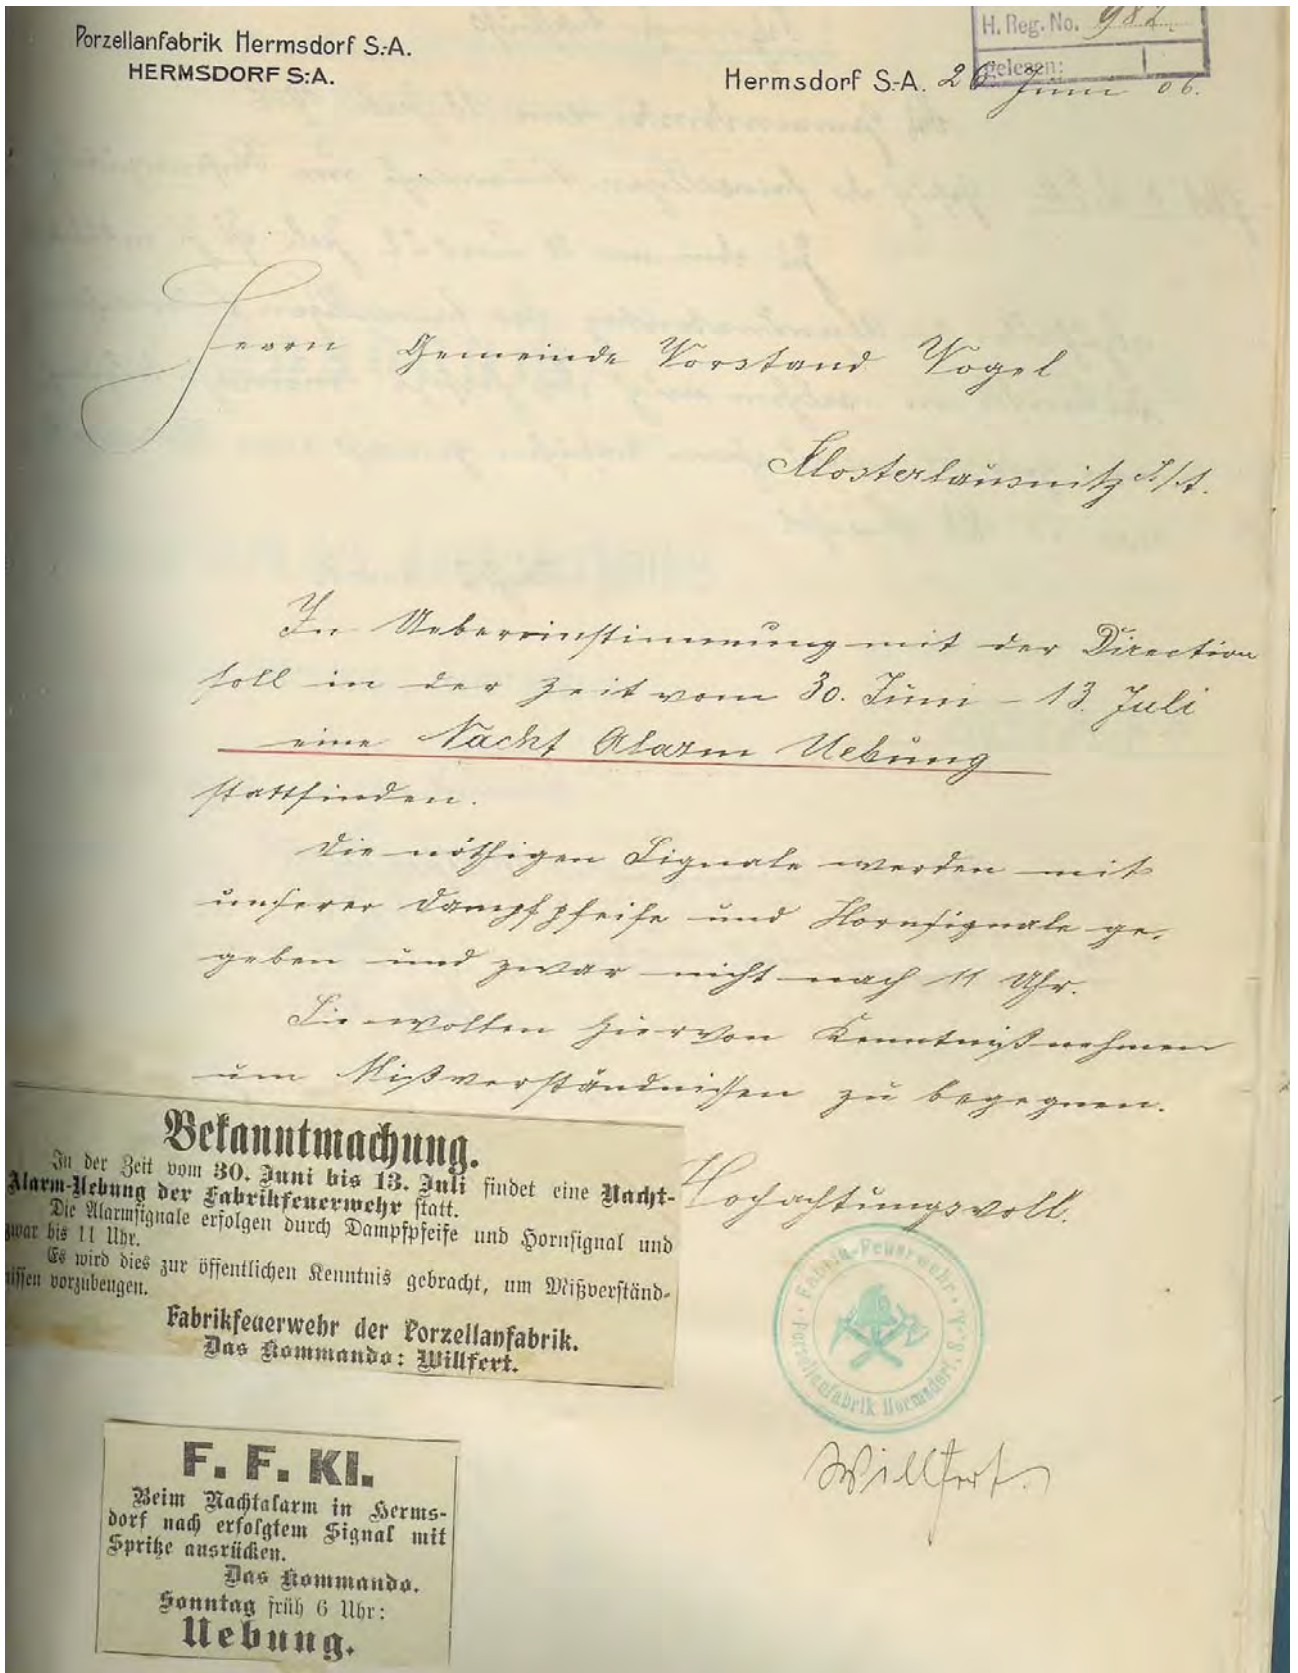 Porzellanfabrik Hermsdorf S.-A.
HERMSDORF S.-A.
H. Reg. No. 982
gelesen:
Hermsdorf S.-A. 26 Juni 06.
Herrn Gemeinde Vorstand Vogel
Klosterlausnitz S/A.
In Uebereinstimmung mit der Direction
soll in der Zeit vom 30. Juni - 13. Juli
eine Nacht Alarm Uebung
stattfinden.
Die nöthigen Signale werden mit
unserer Dampfpfeife und Hornsignale ge-
geben und zwar nicht nach 11 Uhr.
Sie wollen hiervon Kenntniß nehmen
um Mißverständnissen zu begegnen.
Hochachtungsvoll.
Fabrik-Feuerwehr
Porzellanfabrik Hermsdorf, S.-A.
Willfert.
Bekanntmachung.
In der Zeit vom 30. Juni bis 13. Juli findet eine Nacht-
Alarm-Uebung der Fabrikfeuerwehr statt.
Die Alarmsignale erfolgen durch Dampfpfeife und Hornsignal und
zwar bis 11 Uhr.
Es wird dies zur öffentlichen Kenntnis gebracht, um Mißverständ-
nissen vorzubeugen.
Fabrikfeuerwehr der Porzellanfabrik.
Das Kommando: Willfert.
F. F. Kl.
Beim Nachtalarm in Herms-
dorf nach erfolgtem Signal mit
Spritze ausrücken.
Das Kommando.
Sonntag früh 6 Uhr:
Uebung.